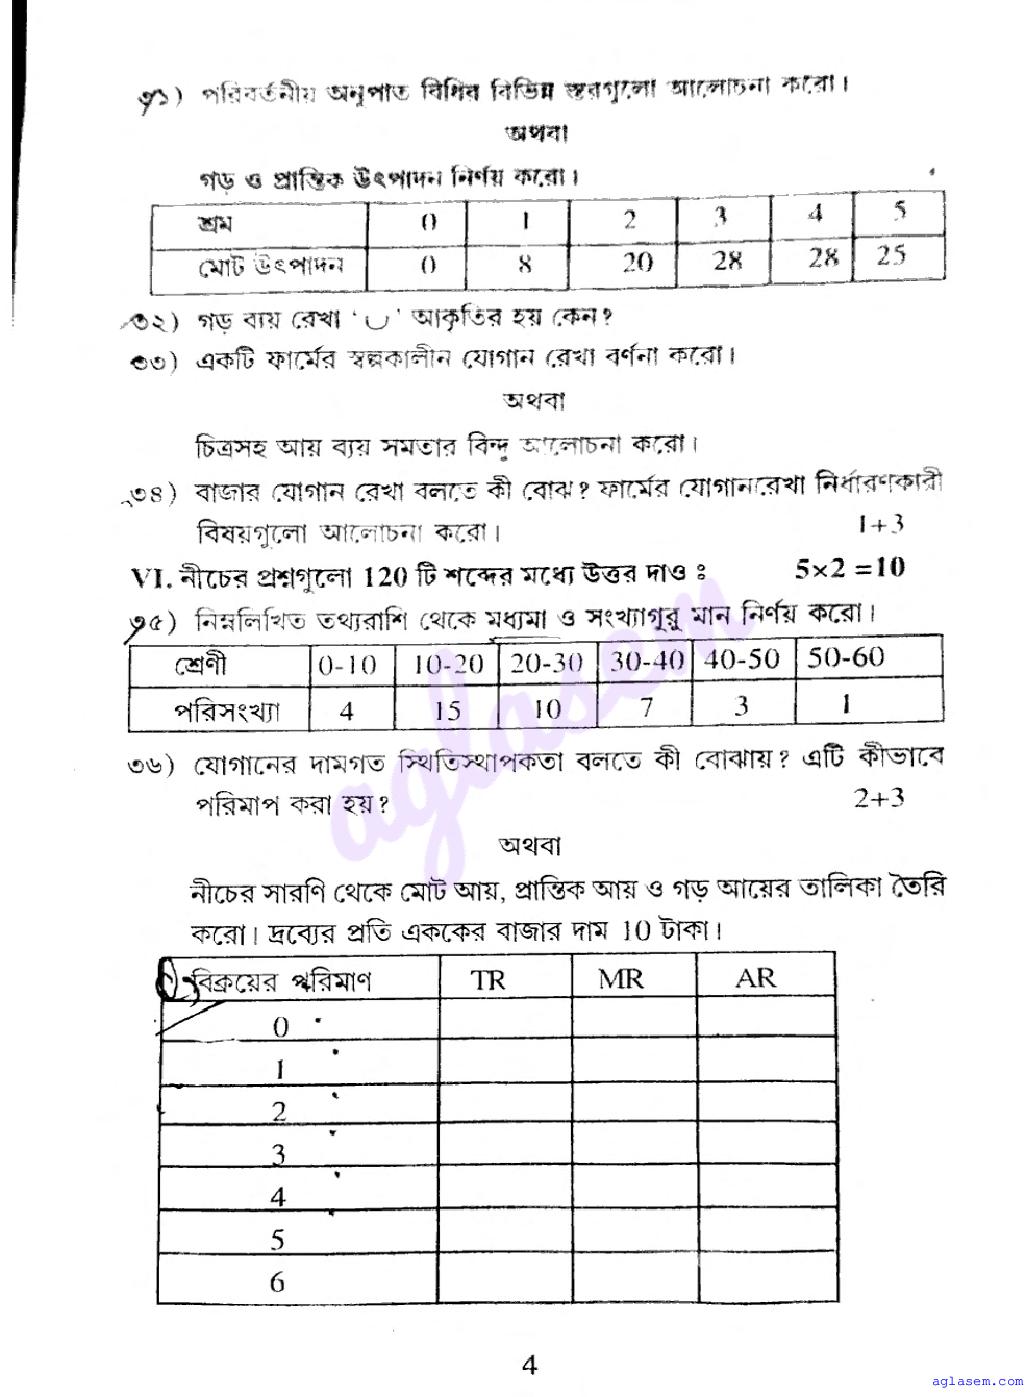 ৩১) পরিবর্তনীয় অনুপাত বিধির বিভিন্ন স্তরগুলো আলোচনা করো।
অথবা
গড় ও প্রান্তিক উৎপাদন নির্ণয় করো।
শ্রম 0 1 2 3 4 5
মোট উৎপাদন 0 8 20 28 28 25
৩২) গড় ব্যয় রেখা ‘∪’ আকৃতির হয় কেন?
৩৩) একটি ফার্মের স্বল্পকালীন যোগান রেখা বর্ণনা করো।
অথবা
চিত্রসহ আয় ব্যয় সমতার বিন্দু আলোচনা করো।
৩৪) বাজার যোগান রেখা বলতে কী বোঝ? ফার্মের যোগানরেখা নির্ধারণকারী
বিষয়গুলো আলোচনা করো। 1+3
VI. নীচের প্রশ্নগুলো 120 টি শব্দের মধ্যে উত্তর দাও ঃ 5×2 =10
৩৫) নিম্নলিখিত তথ্যরাশি থেকে মধ্যমা ও সংখ্যাগুরু মান নির্ণয় করো।
শ্রেণী 0-10 10-20 20-30 30-40 40-50 50-60
পরিসংখ্যা 4 15 10 7 3 1
৩৬) যোগানের দামগত স্থিতিস্থাপকতা বলতে কী বোঝায়? এটি কীভাবে
পরিমাপ করা হয়? 2+3
অথবা
নীচের সারণি থেকে মোট আয়, প্রান্তিক আয় ও গড় আয়ের তালিকা তৈরি
করো। দ্রব্যের প্রতি এককের বাজার দাম 10 টাকা।
বিক্রয়ের পরিমাণ TR MR AR
0
1
2
3
4
5
6
4
aglasem
aglasem.com